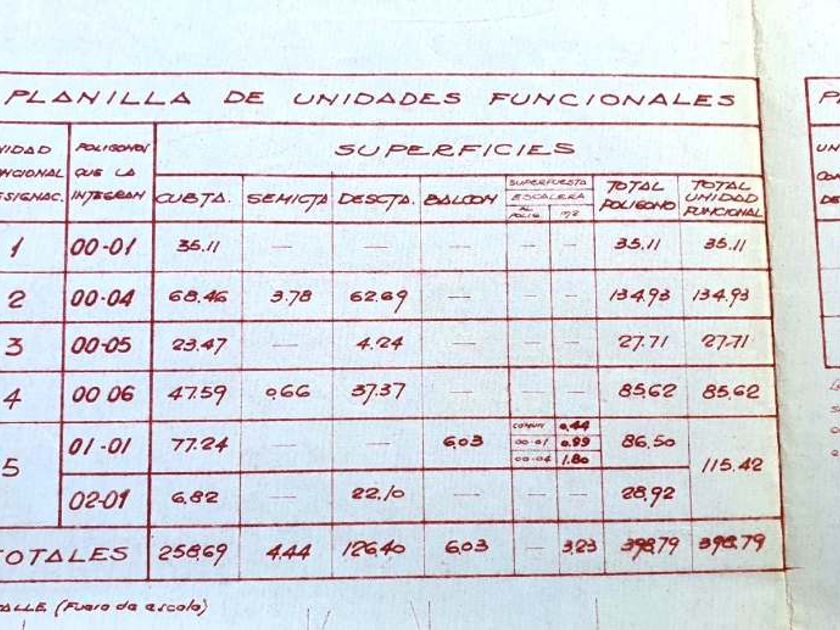 PLANILLA DE UNIDADES FUNCIONALES
NIDAD NCIONAL SIGNAC. POLIGONOS QUE LA INTEGRAN SUPERFICIES
CUBTA. SEMICTA DESCTA. BALCON SUPERPUESTA ESCALERA AL POLIG. m2 TOTAL POLIGONO TOTAL UNIDAD FUNCIONAL
1 00-01 35.11 — — — — — 35.11 35.11
2 00-04 68.46 3.78 62.69 — — — 134.93 134.93
3 00-05 23.47 — 4.24 — — — 27.71 27.71
4 00 06 47.59 0.66 37.37 — — — 85.62 85.62
5 01-01 77.24 — — 6.03 COMUN 0.44 86.50 115.42
00-01 0.99
00-04 1.80
02-01 6.82 — 22.10 — — — 28.92
TOTALES 258.69 4.44 126.40 6.03 — 3.23 398.79 398.79
ALLE (Fuera de escala)
P
UN
CON
DE